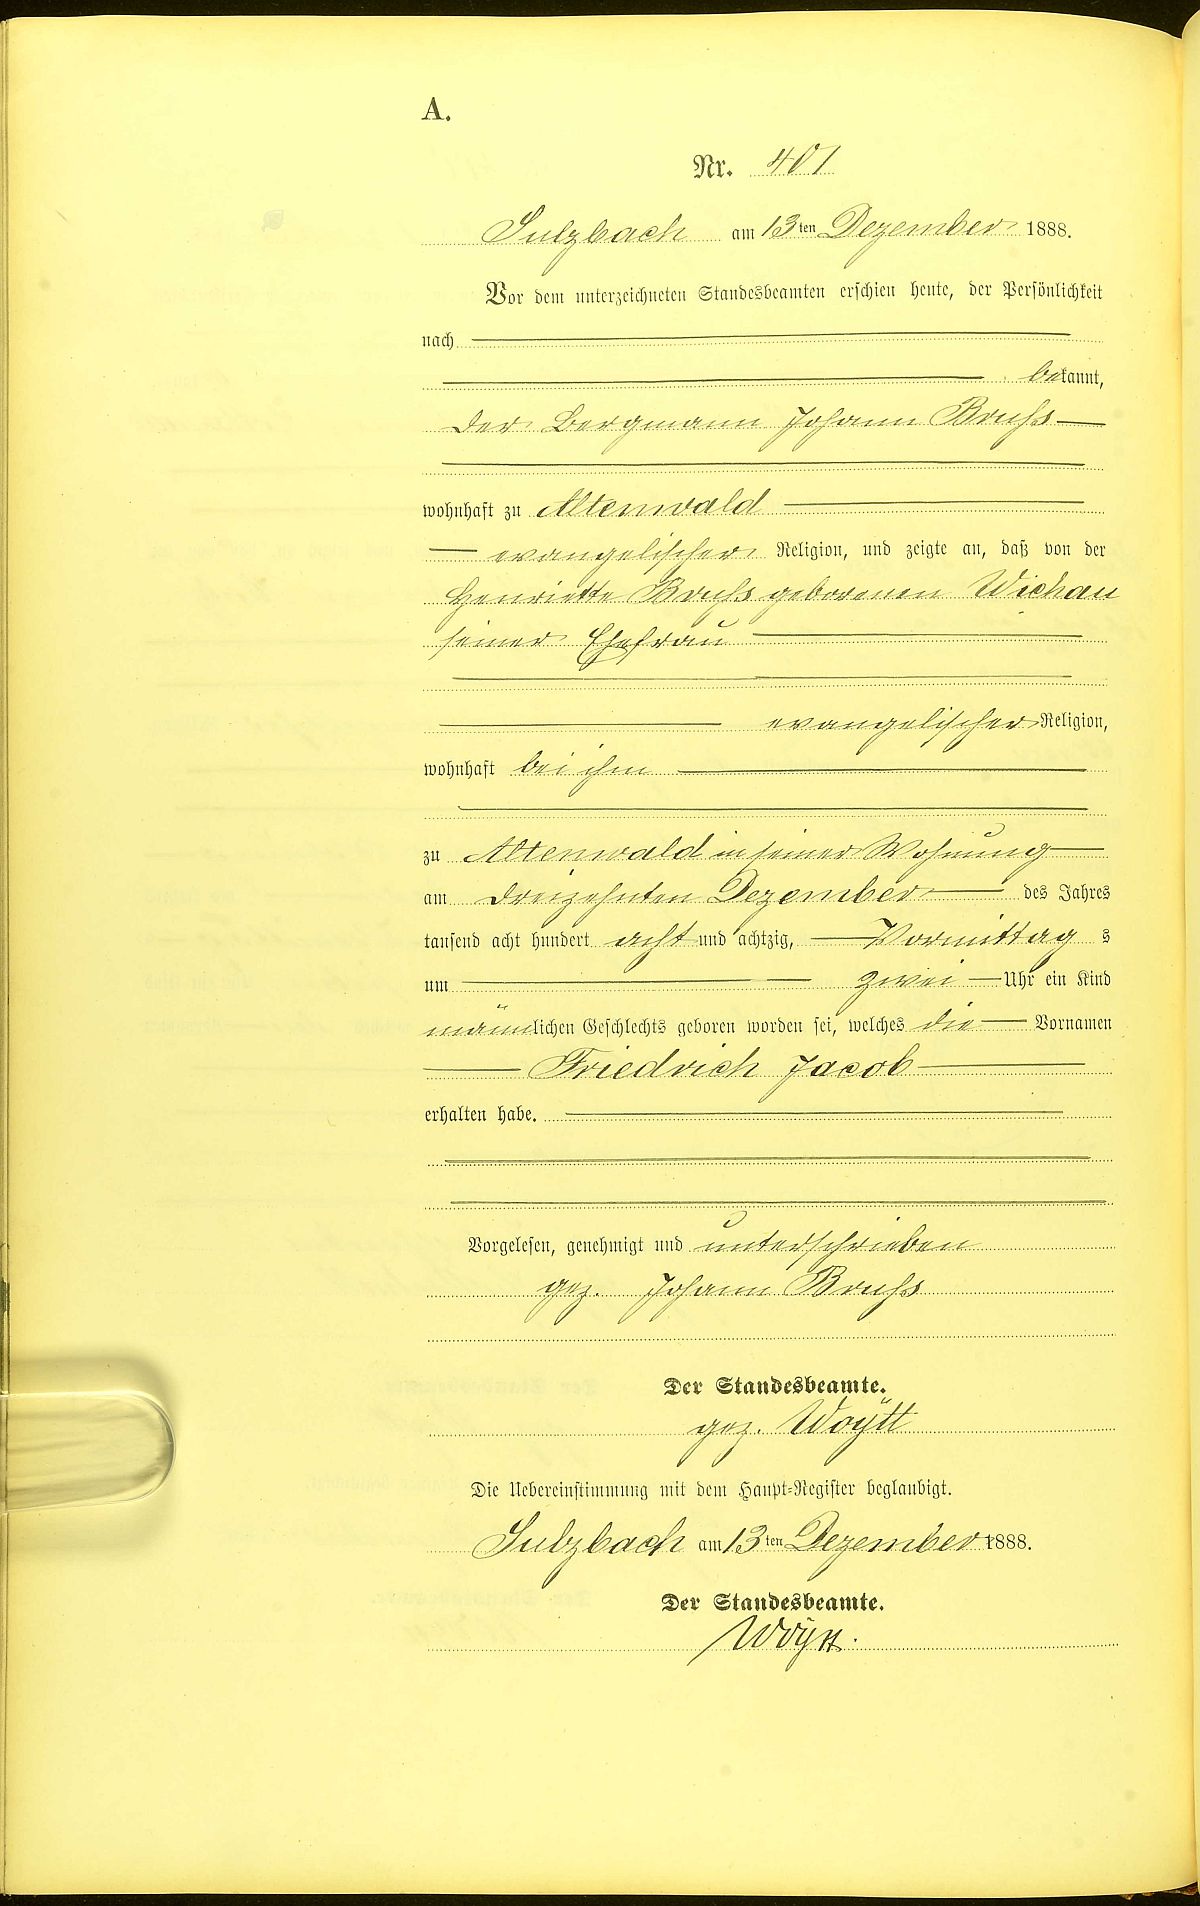 A.
Nr. 401
Sulzbach am 13ten Dezember 1888.
Vor dem unterzeichneten Standesbeamten erschien heute, der Persönlichkeit
nach
bekannt,
der Bergmann Johann Bruhs
wohnhaft zu Altenwald
evangelischer Religion, und zeigte an, daß von der
Henriette Bruhs geborenen Wichau
seiner Ehefrau
evangelischer Religion,
wohnhaft bei ihm
zu Altenwald in seiner Wohnung
am dreizehnten Dezember des Jahres
tausend acht hundert acht und achtzig, Vormittag s
um zwei Uhr ein Kind
männlichen Geschlechts geboren worden sei, welches die Vornamen
Friedrich Jacob
erhalten habe.
Vorgelesen, genehmigt und unterschrieben
gez. Johann Bruhs
Der Standesbeamte.
gez. Woÿtt
Die Uebereinstimmung mit dem Haupt-Register beglaubigt.
Sulzbach am 13ten Dezember 1888.
Der Standesbeamte.
Woÿtt.